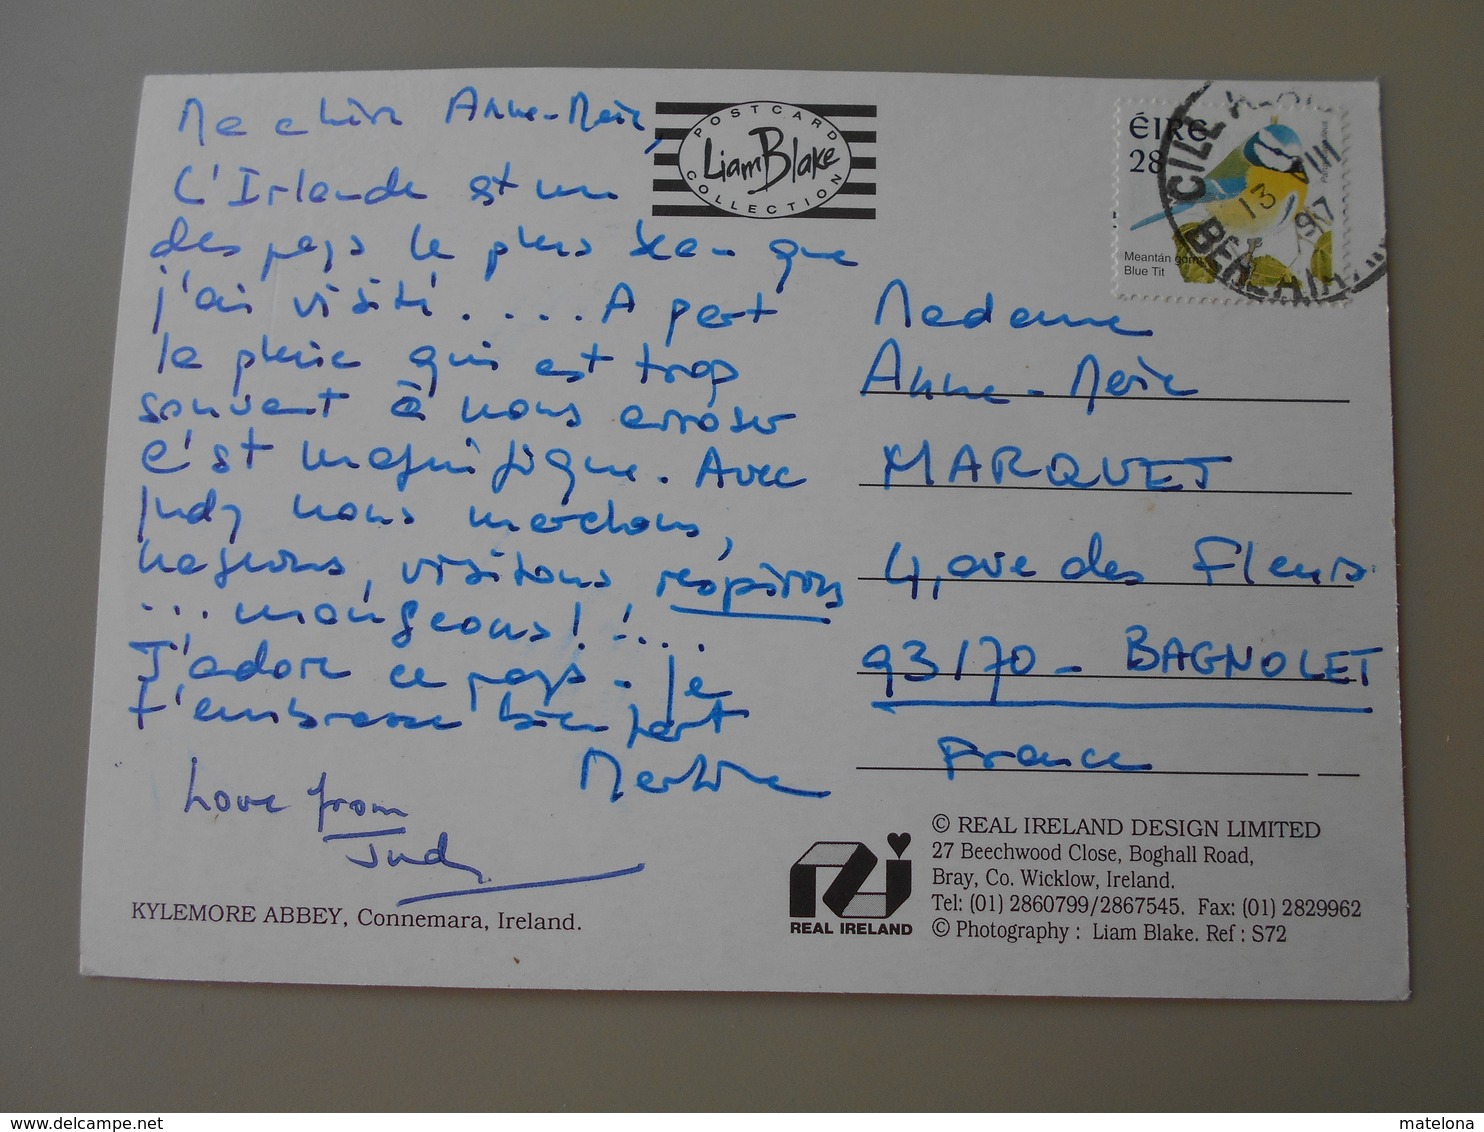 Ma chère Anne-Marie,
L'Irlande est un
des pays le plus beau que
j'ai visité.... A part
la pluie qui est trop
souvent à nous arroser
c'est magnifique. Avec
Judy nous marchons,
nageons, visitons respirons
... mangeons! !...
J'adore ce pays - je
t'embrasse bien fort
Martine
Love from
Judy
KYLEMORE ABBEY, Connemara, Ireland.
POSTCARD
Liam Blake
COLLECTION
ÉIRE
28
Meantán gorm
Blue Tit
CILL
13 VIII
97
Madame
Anne-Marie
MARQUET
4, ave des Fleurs
93170 - BAGNOLET
France
REAL IRELAND
© REAL IRELAND DESIGN LIMITED
27 Beechwood Close, Boghall Road,
Bray, Co. Wicklow, Ireland.
Tel: (01) 2860799/2867545. Fax: (01) 2829962
© Photography : Liam Blake. Ref : S72
www.delcampe.net
matelona